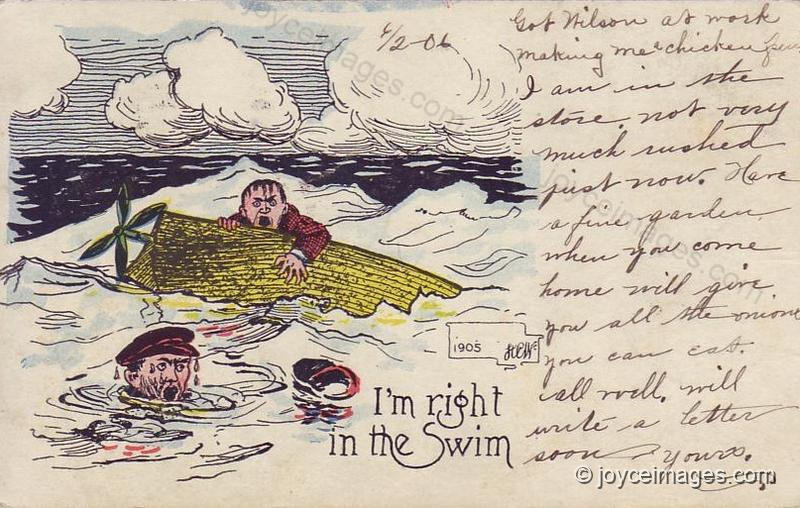 6/2-06
Got Wilson at work
making me a chicken
I am in the
store, not very
much rushed
just now. Have
a fine garden,
when you come
home will give
you all the onions
you can eat.
All well. will
write a letter
soon Yours.
1905
I'm right
in the Swim
joyceimages.com
joyceimages.com
joyceimages.com
joyceimages.com
© joyceimages.com